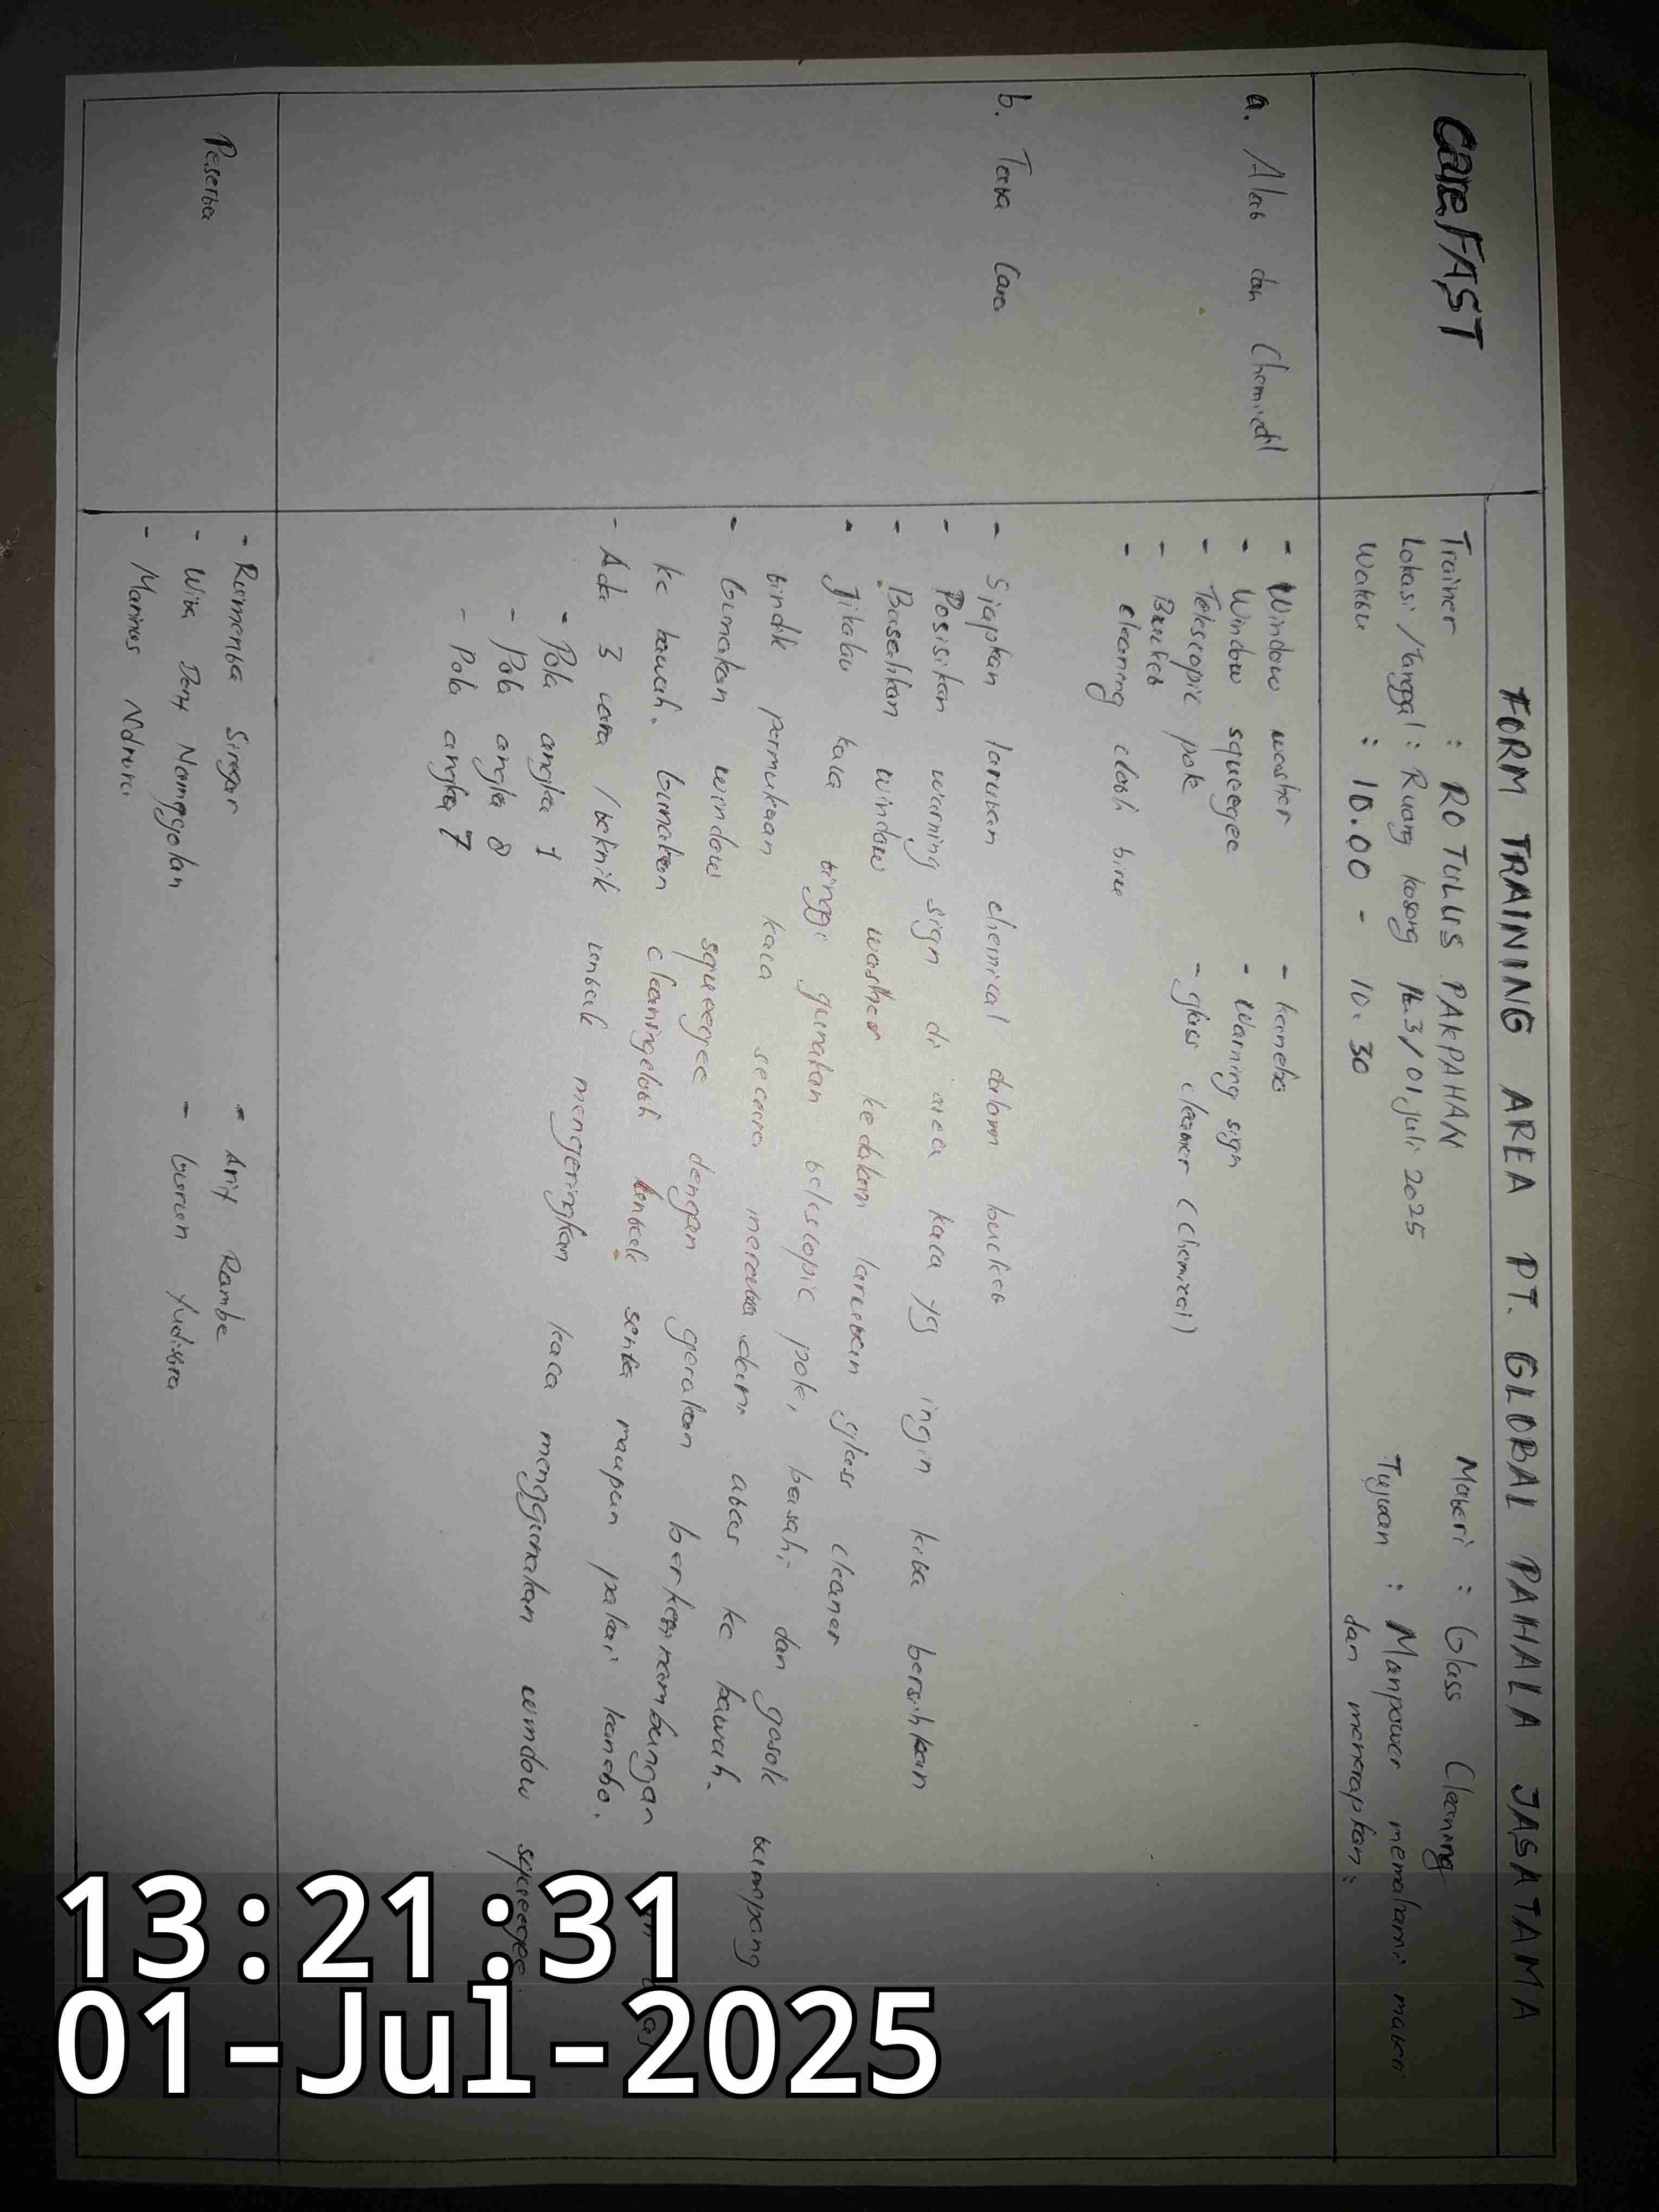 FORM TRAINING AREA PT. GLOBAL PAHALA JASATAMA
CareFAST
Trainer : RO TULUS PAKPAHAN
Lokasi / Tanggal : Ruang kosong lt.3 / 01 juli 2025
Waktu : 10.00 - 10.30
Materi : Glass Cleaning
Tujuan : Manpower memahami materi
dan menerapkan :
a. Alat dan Chemical
- Window washer
- Window squeegee
- Telescopic pole
- Bucket
- cleaning cloth biru
- kanebo
- Warning sign
- glass cleaner (Chemical)
b. Tata Cara
- Siapkan larutan chemical dalam bucket
- Posisikan warning sign di area kaca yg ingin kita bersihkan
- Basahkan window washer kedalam larutan glass cleaner
- Jikalau kaca tinggi gunakan telescopic pole, basahi dan gosok tumpang
tindih permukaan kaca secara merata dari atas ke bawah.
- Gunakan window squeegee dengan gerakan berkesinambungan
ke bawah. Gunakan cleaning cloth untuk sentu maupun pakai kanebo.
- Ada 3 cara / teknik untuk mengeringkan kaca menggunakan window squeegee
- Pola angka 1
- Pola angka 8
- Pola angka 7
Peserta
- Rumenta Siregar
- Wira Dony Nainggolan
- Marinus Ndruru
- Arix Rambe
- Gurun Yudistra
13:21:31
01-Jul-2025